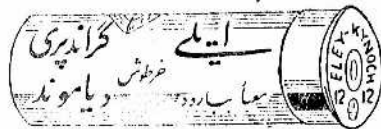 ایلی گراندپری
خرطوش
معأ بارود دیاموند
ELEY-KYNOCH
12 12